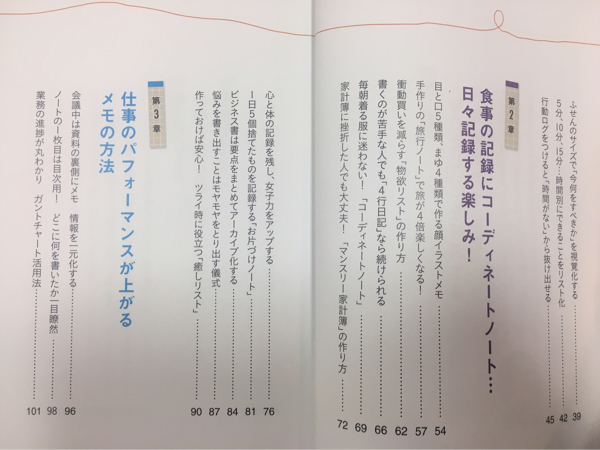 ふせんのサイズで「今何をすべきか」を視覚化する………39
5分、10分、15分…時間別にできることをリスト化………42
行動ログをつけると、「時間がない」から抜け出せる………45
第2章
食事の記録にコーディネートノート…
日々記録する楽しみ！
目と口5種類、まゆ4種類で作る顔イラストメモ………54
手作りの「旅行ノート」で旅が4倍楽しくなる！………57
衝動買いを減らす「物欲リスト」の作り方………62
書くのが苦手な人でも「4行日記」なら続けられる………66
毎朝着る服に迷わない！「コーディネートノート」………69
家計簿に挫折した人でも大丈夫！「マンスリー家計簿」の作り方………72
心と体の記録を残し、女子力をアップする………76
1日5個捨てたものを記録する「お片づけノート」………81
ビジネス書は要点をまとめてアーカイブ化する………84
悩みを書き出すことはモヤモヤをとり出す儀式………87
作っておけば安心！ ツライ時に役立つ「癒しリスト」………90
第3章
仕事のパフォーマンスが上がる
メモの方法
会議中は資料の裏側にメモ 情報を一元化する………96
ノートの1枚目は目次用！ どこに何を書いたか一目瞭然………98
業務の進捗が丸わかり ガントチャート活用法………101